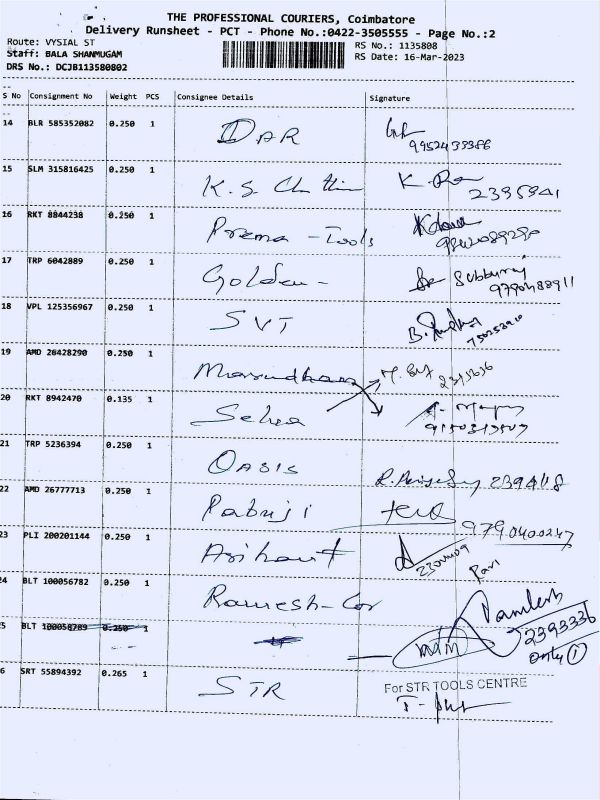 THE PROFESSIONAL COURIERS, Coimbatore
Delivery Runsheet - PCT - Phone No.:0422-3505555 - Page No.:2
Route: VYSIAL ST RS No.: 1135808
Staff: BALA SHANMUGAM RS Date: 16-Mar-2023
DRS No.: DCJB113580802
S No Consignment No Weight PCS Consignee Details Signature
14 BLR 585352082 0.250 1 DAR
9952433386
15 SLM 315816425 0.250 1 K.S. 2395941
16 RKT 8844238 0.250 1 Prema - Tools
17 TRP 6042889 0.250 1 Golden - Subburaj
9790488911
18 VPL 125356967 0.250 1 SVT
19 AMD 26428290 0.250 1
20 RKT 8942470 0.135 1 Selva
21 TRP 5236394 0.250 1 OASIS
22 AMD 26777713 0.250 1 Pabriji
9790400247
23 PLI 200201144 0.250 1 Arihant
Ravi
24 BLT 100056782 0.250 1 Ramesh-Cor
5 BLT 100058789 0.250 1
2393336
only 1
6 SRT 55894392 0.265 1 STR
For STR TOOLS CENTRE